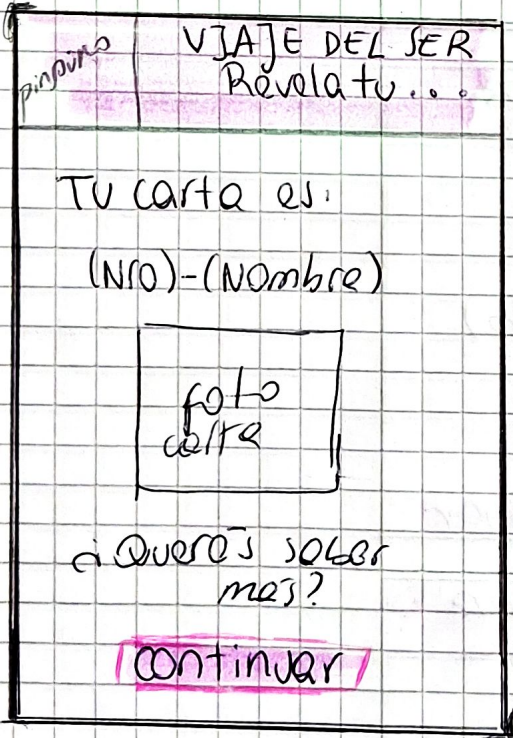 pinguino
VIAJE DEL SER
Revela tu...
Tu carta es:
(Nro)-(Nombre)
foto
carta
¿Querés saber
más?
continuar